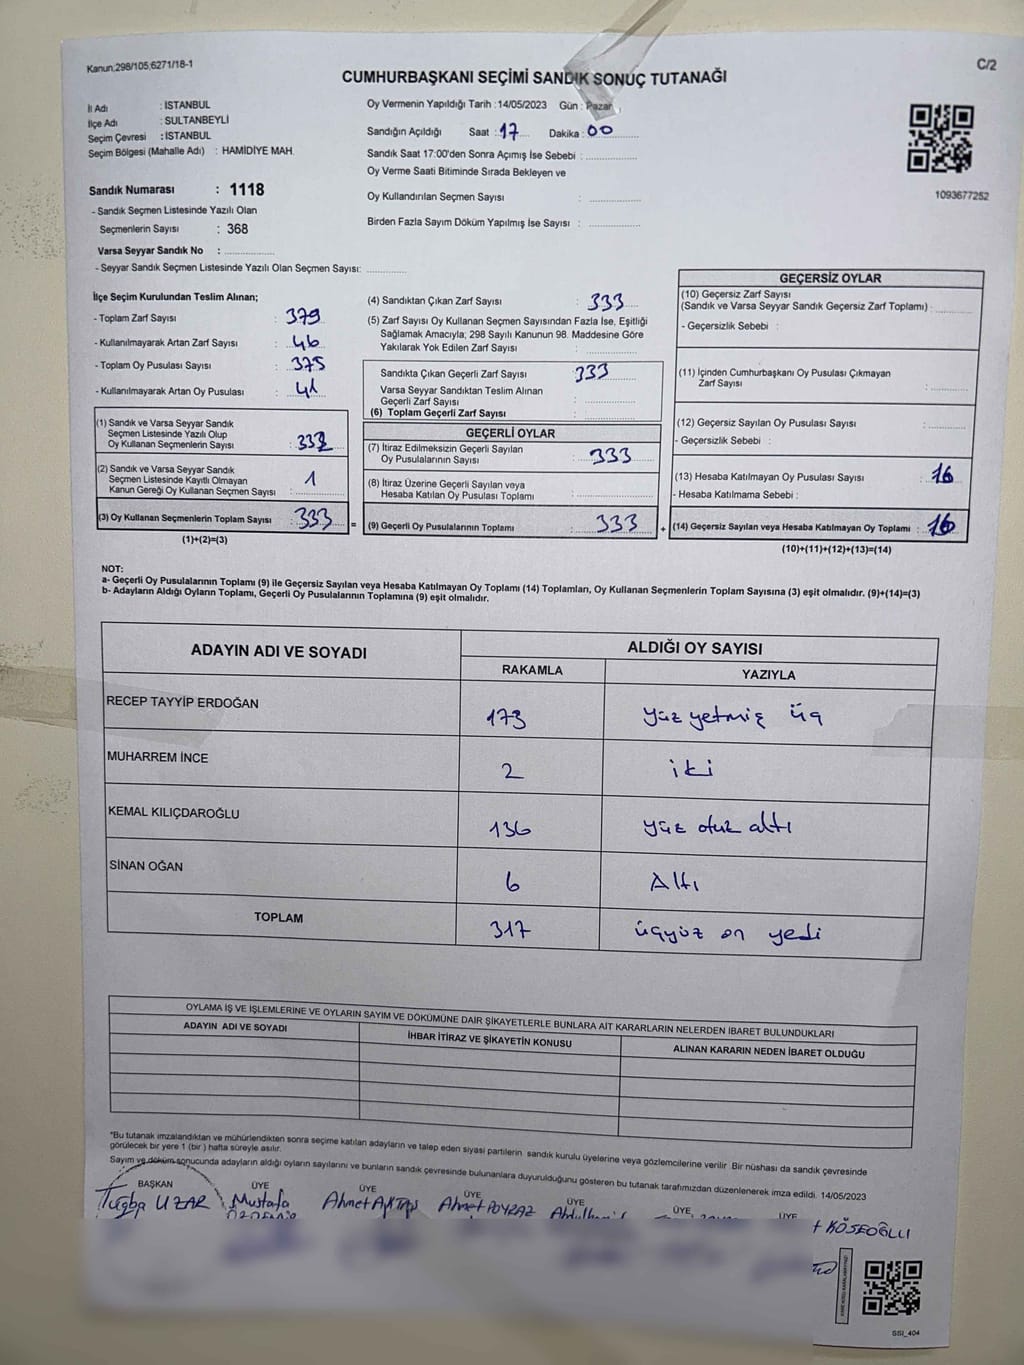 Kanun;298/105;6271/18-1
C/2
CUMHURBAŞKANI SEÇİMİ SANDIK SONUÇ TUTANAĞI
İl Adı : İSTANBUL
İlçe Adı : SULTANBEYLİ
Seçim Çevresi : İSTANBUL
Seçim Bölgesi (Mahalle Adı) : HAMİDİYE MAH.
Sandık Numarası : 1118
- Sandık Seçmen Listesinde Yazılı Olan
Seçmenlerin Sayısı : 368
Varsa Seyyar Sandık No :
- Seyyar Sandık Seçmen Listesinde Yazılı Olan Seçmen Sayısı:
Oy Vermenin Yapıldığı Tarih : 14/05/2023 Gün : Pazar
Sandığın Açıldığı Saat : 17 Dakika : 00
Sandık Saat 17:00'den Sonra Açımış İse Sebebi :
Oy Verme Saati Bitiminde Sırada Bekleyen ve
Oy Kullandırılan Seçmen Sayısı :
Birden Fazla Sayım Döküm Yapılmış İse Sayısı :
1093677252
İlçe Seçim Kurulundan Teslim Alınan;
- Toplam Zarf Sayısı : 379
- Kullanılmayarak Artan Zarf Sayısı : 46
- Toplam Oy Pusulası Sayısı : 375
- Kullanılmayarak Artan Oy Pusulası :
(1) Sandık ve Varsa Seyyar Sandık
Seçmen Listesinde Yazılı Olup
Oy Kullanan Seçmenlerin Sayısı : 332
(2) Sandık ve Varsa Seyyar Sandık
Seçmen Listesinde Kayıtlı Olmayan
Kanun Gereği Oy Kullanan Seçmen Sayısı : 1
(3) Oy Kullanan Seçmenlerin Toplam Sayısı : 333 =
(1)+(2)=(3)
(4) Sandıktan Çıkan Zarf Sayısı : 333
(5) Zarf Sayısı Oy Kullanan Seçmen Sayısından Fazla İse, Eşitliği
Sağlamak Amacıyla; 298 Sayılı Kanunun 98. Maddesine Göre
Yakılarak Yok Edilen Zarf Sayısı :
Sandıkta Çıkan Geçerli Zarf Sayısı : 333
Varsa Seyyar Sandıktan Teslim Alınan
Geçerli Zarf Sayısı :
(6) Toplam Geçerli Zarf Sayısı :
GEÇERLİ OYLAR
(7) İtiraz Edilmeksizin Geçerli Sayılan
Oy Pusulalarının Sayısı : 333
(8) İtiraz Üzerine Geçerli Sayılan veya
Hesaba Katılan Oy Pusulası Toplamı :
(9) Geçerli Oy Pusulalarının Toplamı : 333 +
GEÇERSİZ OYLAR
(10) Geçersiz Zarf Sayısı
(Sandık ve Varsa Seyyar Sandık Geçersiz Zarf Toplamı) :
- Geçersizlik Sebebi :
(11) İçinden Cumhurbaşkanı Oy Pusulası Çıkmayan
Zarf Sayısı :
(12) Geçersiz Sayılan Oy Pusulası Sayısı :
- Geçersizlik Sebebi :
(13) Hesaba Katılmayan Oy Pusulası Sayısı : 16
- Hesaba Katılmama Sebebi :
(14) Geçersiz Sayılan veya Hesaba Katılmayan Oy Toplamı : 16
(10)+(11)+(12)+(13)=(14)
NOT:
a- Geçerli Oy Pusulalarının Toplamı (9) ile Geçersiz Sayılan veya Hesaba Katılmayan Oy Toplamı (14) Toplamları, Oy Kullanan Seçmenlerin Toplam Sayısına (3) eşit olmalıdır. (9)+(14)=(3)
b- Adayların Aldığı Oyların Toplamı, Geçerli Oy Pusulalarının Toplamına (9) eşit olmalıdır.
ADAYIN ADI VE SOYADI
ALDIĞI OY SAYISI
RAKAMLA YAZIYLA
RECEP TAYYİP ERDOĞAN 173 yüz yetmiş üç
MUHARREM İNCE 2 iki
KEMAL KILIÇDAROĞLU 136 yüz otuz altı
SİNAN OĞAN 6 Altı
TOPLAM 317 üçyüz on yedi
OYLAMA İŞ VE İŞLEMLERİNE VE OYLARIN SAYIM VE DÖKÜMÜNE DAİR ŞİKAYETLERLE BUNLARA AİT KARARLARIN NELERDEN İBARET BULUNDUKLARI
ADAYIN ADI VE SOYADI İHBAR İTİRAZ VE ŞİKAYETİN KONUSU ALINAN KARARIN NEDEN İBARET OLDUĞU
*Bu tutanak imzalandıktan ve mühürlendikten sonra seçime katılan adayların ve talep eden siyasi partilerin sandık kurulu üyelerine veya gözlemcilerine verilir Bir nüshası da sandık çevresinde
görülecek bir yere 1 (bir) hafta süreyle asılır.
Sayım ve döküm sonucunda adayların aldığı oyların sayılarını ve bunların sandık çevresinde bulunanlara duyurulduğunu gösteren bu tutanak tarafımızdan düzenlenerek imza edildi. 14/05/2023
BAŞKAN ÜYE ÜYE ÜYE ÜYE ÜYE
Tuğba UZAR Mustafa Ahmet AKTAŞ Ahmet POYRAZ
KÖSEOĞLU
SSI_404